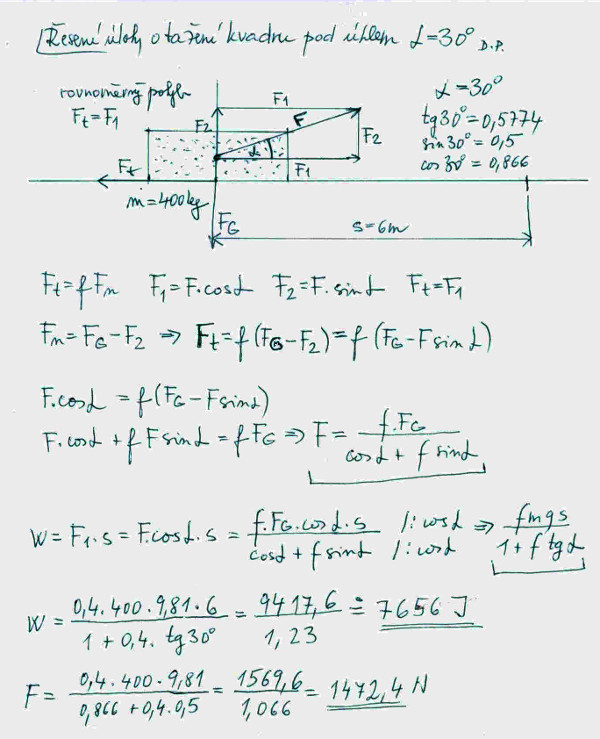 Řešení úlohy o tažení kvádru pod úhlem α=30° D.P.
rovnoměrný pohyb
Ft=F1
F1
F2
F
α
F2
F1
Ft
m=400kg
FG
s=6m
α=30°
tg30°=0,5774
sin30°=0,5
cos30°=0,866
Ft=fFn F1=F.cosα F2=F.sinα Ft=F1
Fn=FG-F2 ⇒ Ft=f(FG-F2)=f(FG-Fsinα)
F.cosα=f(FG-Fsinα)
F.cosα+fFsinα=fFG ⇒ F= f.FG / cosα+f sinα
W=F1.s=F.cosα.s= f.FG.cosα.s / cosα+f sinα /:cosα /:cosα ⇒ fmgs / 1+f tgα
W= 0,4.400.9,81.6 / 1+0,4.tg30° = 9417,6 / 1,23 ≐ 7656 J
F= 0,4.400.9,81 / 0,866+0,4.0,5 = 1569,6 / 1,066 = 1472,4 N